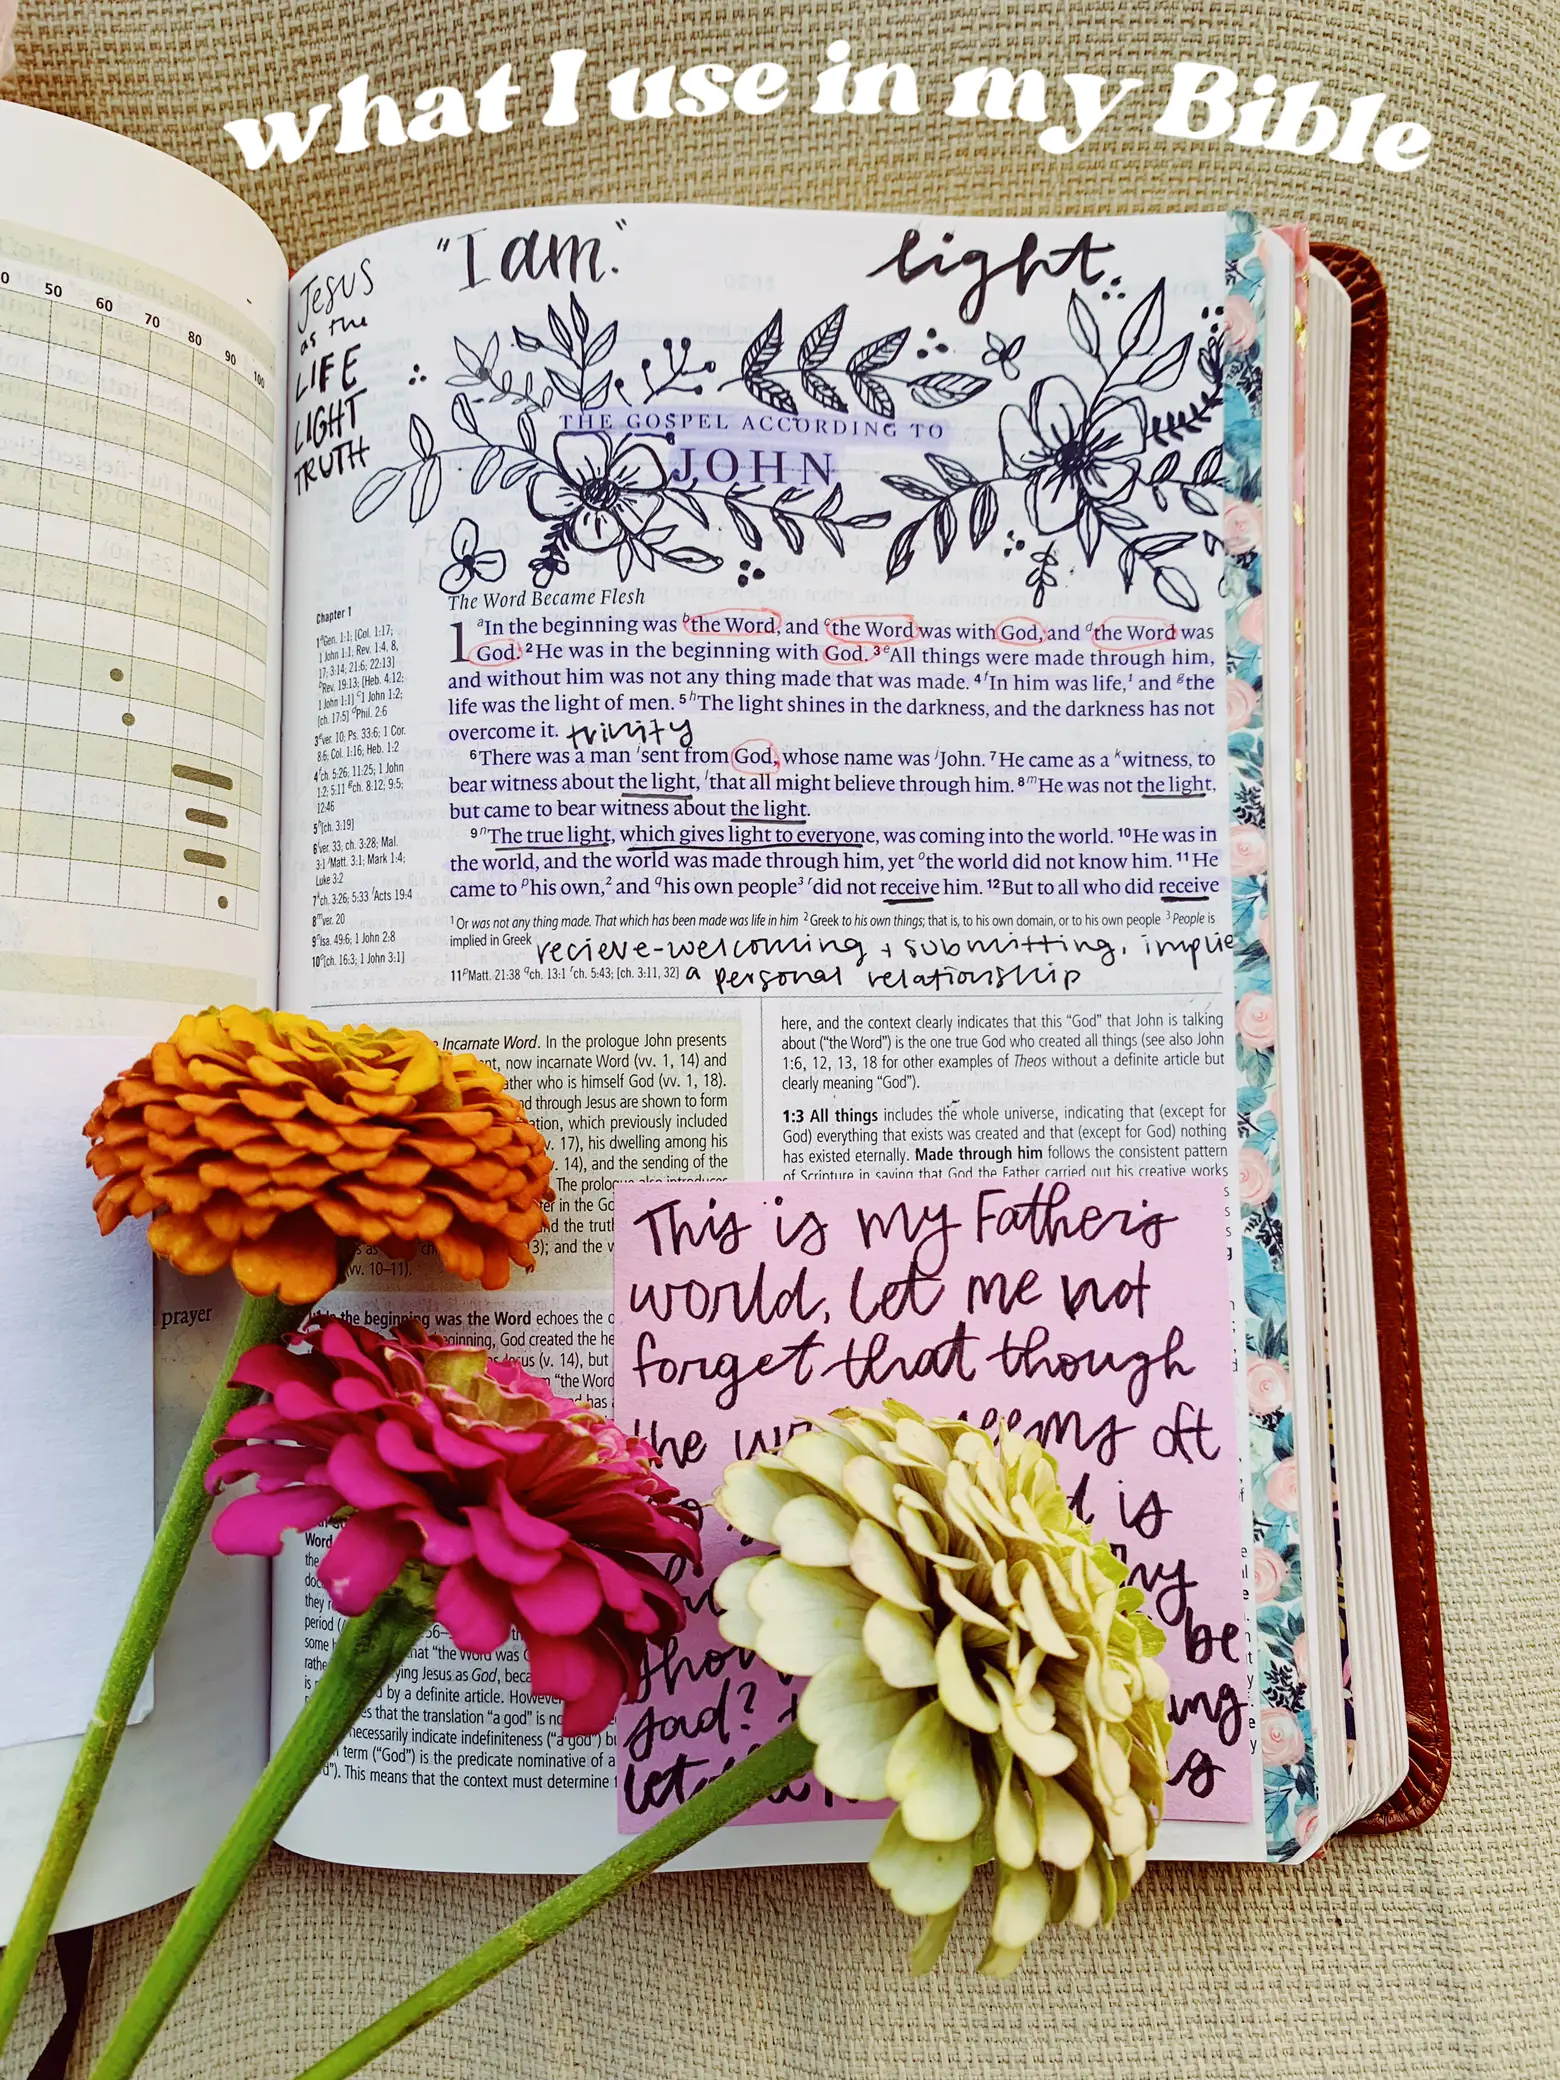 what I use in my Bible
"I am." light
Jesus
as the
LIFE
LIGHT
TRUTH
50 60 70 80 90 100
THE GOSPEL ACCORDING TO
JOHN
The Word Became Flesh
Chapter 1
1 aGen. 1:1; [Col. 1:17;
1 John 1:1; Rev. 1:4, 8,
17; 3:14; 21:6; 22:13]
bRev. 19:13; [Heb. 4:12;
1 John 1:1] c1 John 1:2;
[ch. 17:5] dPhil. 2:6
3 ever. 10; Ps. 33:6; 1 Cor.
8:6; Col. 1:16; Heb. 1:2
4 fch. 5:26; 11:25; 1 John
1:2; 5:11 gch. 8:12; 9:5;
12:46
5 h[ch. 3:19]
6 iver. 33; ch. 3:28; Mal.
3:1 jMatt. 3:1; Mark 1:4;
Luke 3:2
7 kch. 3:26; 5:33 lActs 19:4
8 mver. 20
9 nIsa. 49:6; 1 John 2:8
10 o[ch. 16:3; 1 John 3:1]
1 aIn the beginning was bthe Word, and cthe Word was with God, and dthe Word was
God. 2 He was in the beginning with God. 3 eAll things were made through him,
and without him was not any thing made that was made. 4 fIn him was life,1 and gthe
life was the light of men. 5 hThe light shines in the darkness, and the darkness has not
overcome it. trinity
6 There was a man isent from God, whose name was jJohn. 7 He came as a kwitness, to
bear witness about the light, lthat all might believe through him. 8 mHe was not the light,
but came to bear witness about the light.
9 nThe true light, which gives light to everyone, was coming into the world. 10 He was in
the world, and the world was made through him, yet othe world did not know him. 11 He
came to phis own,2 and qhis own people3 rdid not receive him. 12 But to all who did receive
1 Or was not any thing made. That which has been made was life in him 2 Greek to his own things; that is, to his own domain, or to his own people 3 People is
implied in Greek recieve-welcoming + submitting, implie
11 pMatt. 21:38 qch. 13:1 rch. 5:43; [ch. 3:11, 32] a personal relationship
Incarnate Word. In the prologue John presents
now incarnate Word (vv. 1, 14) and
who is himself God (vv. 1, 18).
through Jesus are shown to form
which previously included
17), his dwelling among his
14), and the sending of the
The prologue also introduces
in the
and the
13); and the
(vv. 10–11).
the beginning was the Word echoes the
God created the
(v. 14), but
"the Word
has
here, and the context clearly indicates that this "God" that John is talking
about ("the Word") is the one true God who created all things (see also John
1:6, 12, 13, 18 for other examples of Theos without a definite article but
clearly meaning "God").
1:3 All things includes the whole universe, indicating that (except for
God) everything that exists was created and that (except for God) nothing
has existed eternally. Made through him follows the consistent pattern
of Scripture in saying that God the Father carried out his creative works
This is my Father's
world, let me not
forget that though
the seems oft
is
be
sad?
let
prayer
Word
the
they
period
some that "the Word was
Jesus as God,
is by a definite article. However
that the translation "a god" is
necessarily indicate indefiniteness ("a god")
term ("God") is the predicate nominative of a
This means that the context must determine